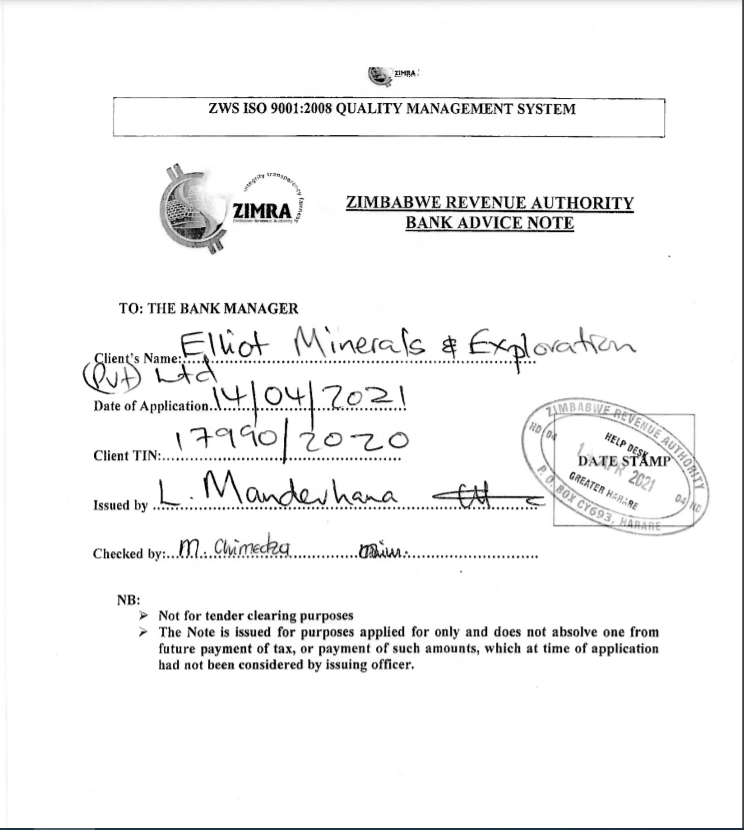 ZIMRA
ZWS ISO 9001:2008 QUALITY MANAGEMENT SYSTEM
integrity transparency fairness
ZIMRA
ZIMBABWE REVENUE AUTHORITY
BANK ADVICE NOTE
TO: THE BANK MANAGER
Client's Name: Elliot Minerals & Exploration
(Pvt) Ltd
Date of Application 14/04/2021
Client TIN: 17990/2020
ZIMBABWE REVENUE AUTHORITY
HELP DESK
DATE STAMP
APR 2021
GREATER HARARE
P.O. BOX CY693, HARARE
Issued by L. Manderhana
Checked by: M. Chimedza
NB:
➢ Not for tender clearing purposes
➢ The Note is issued for purposes applied for only and does not absolve one from
future payment of tax, or payment of such amounts, which at time of application
had not been considered by issuing officer.